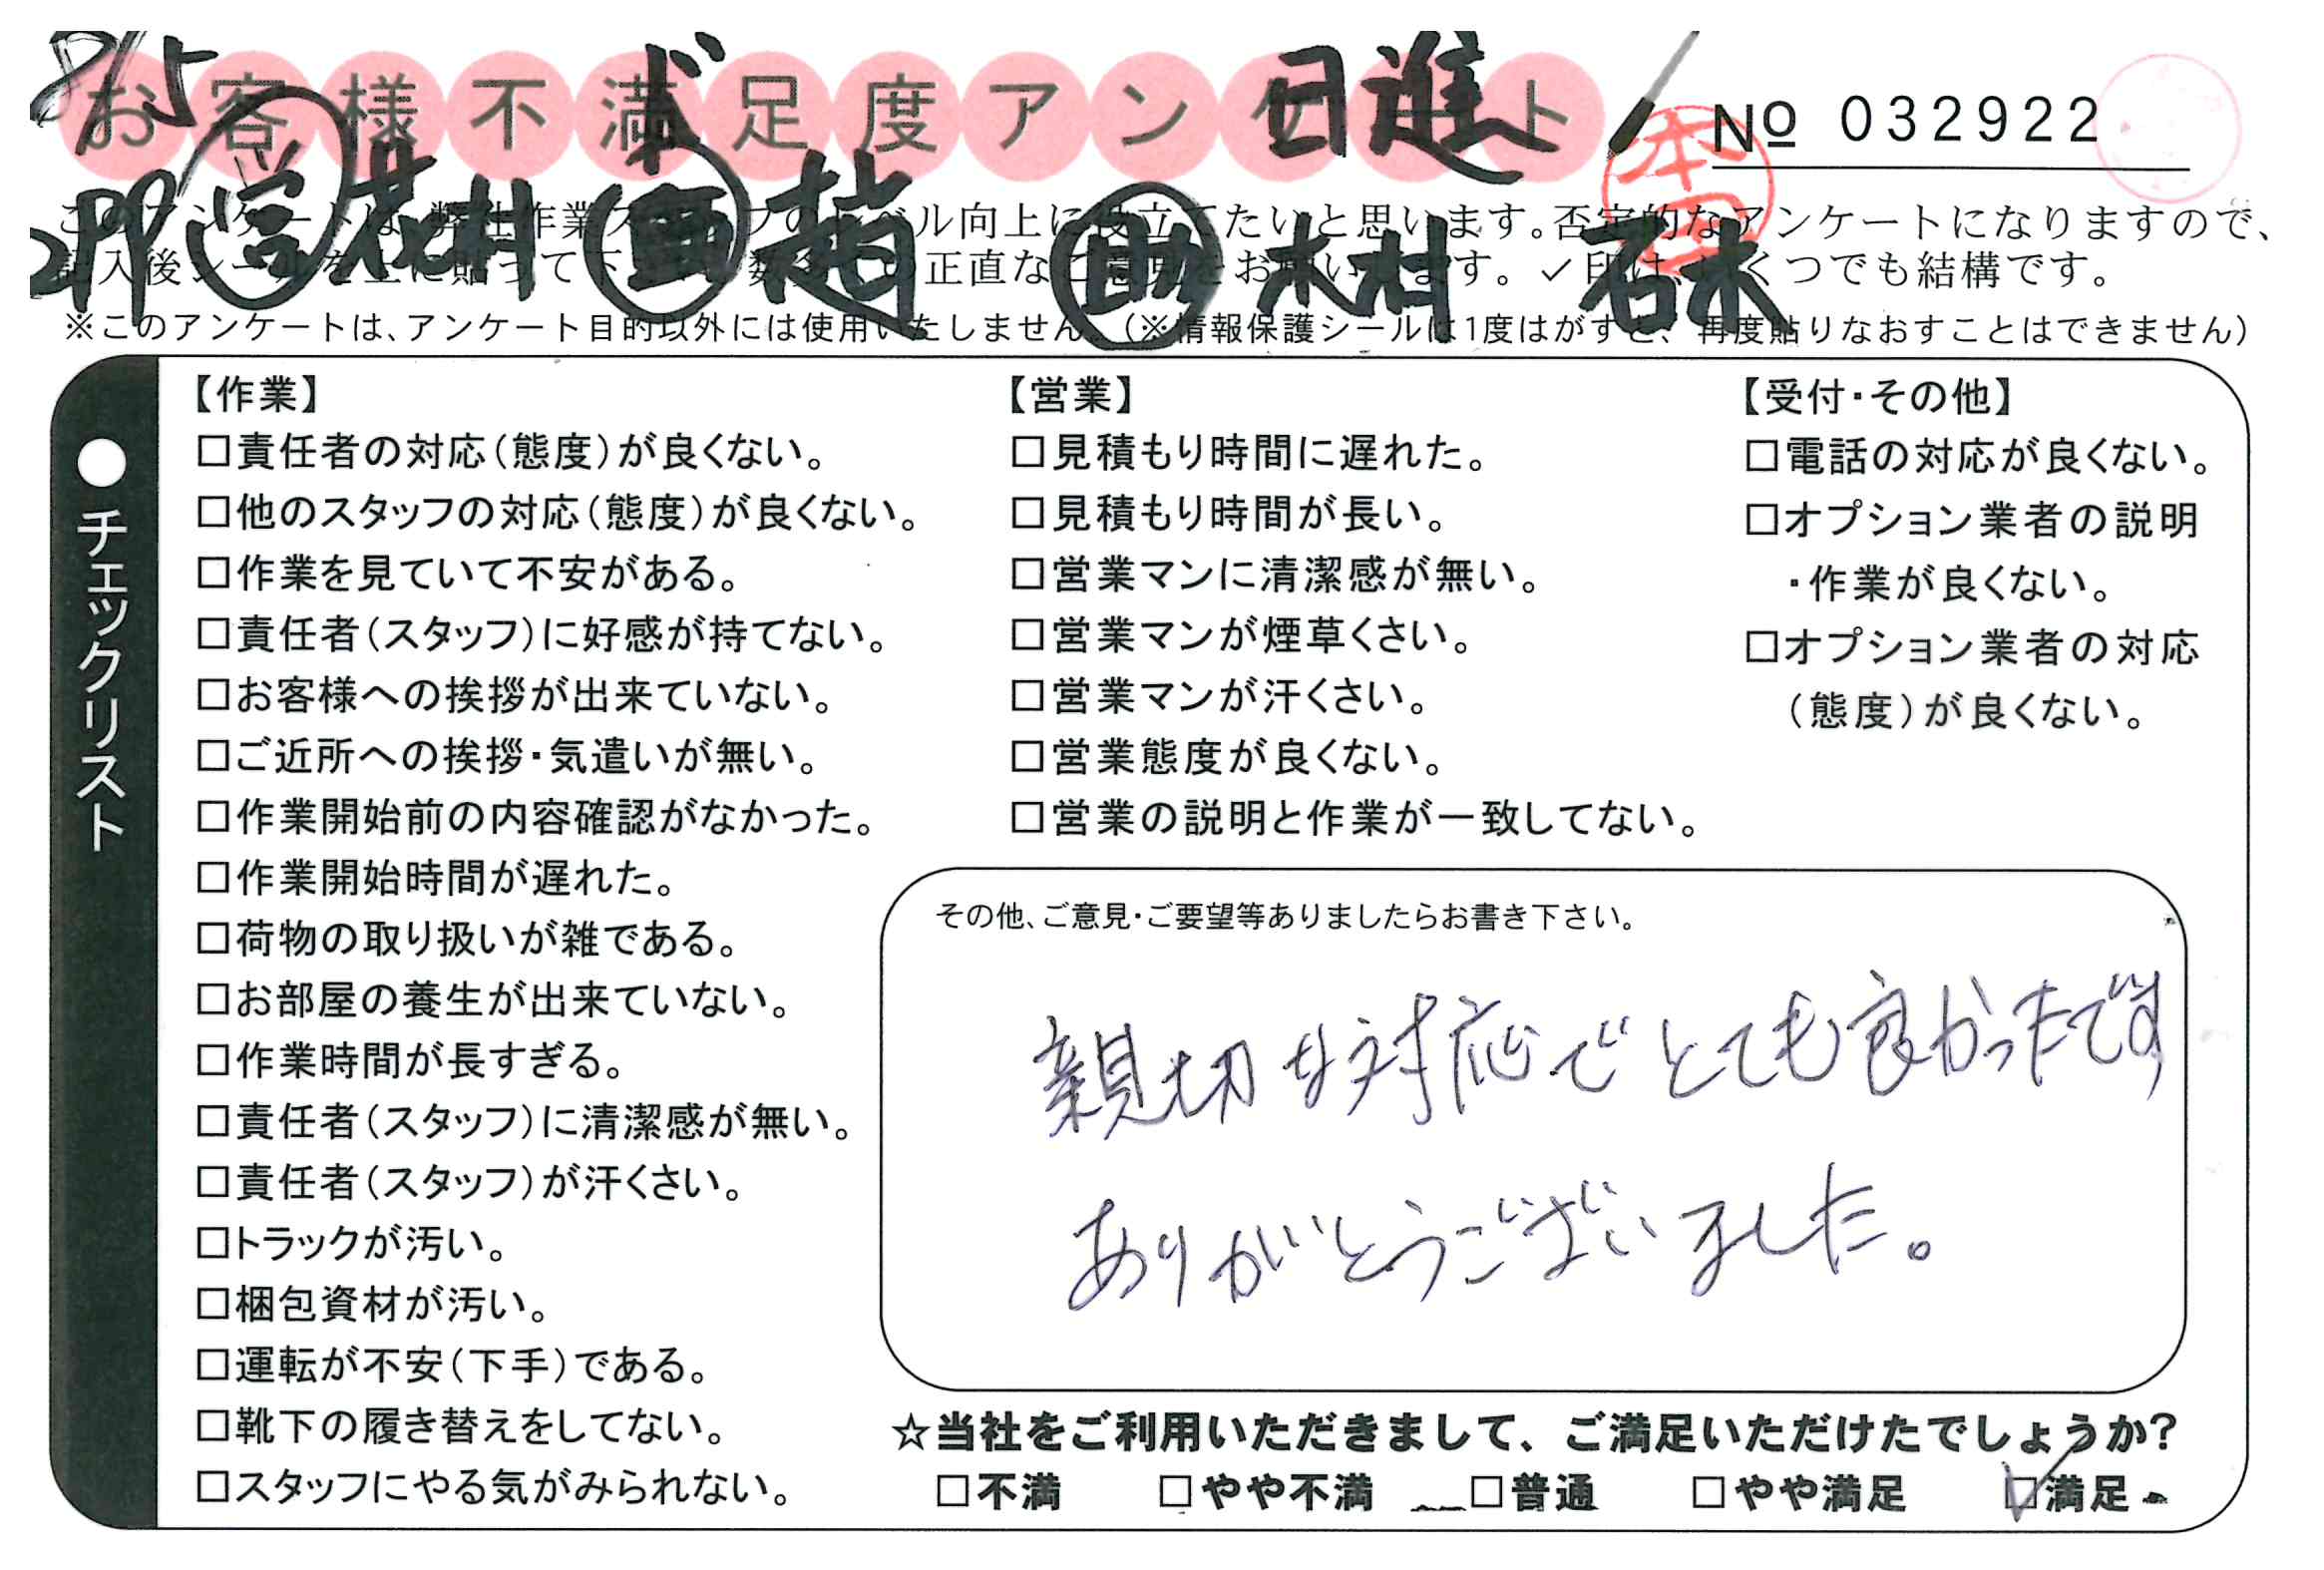 8/5
お客様不満足度アンケート
日進
No 032922
本田
営 花村 画 趙 助 木村 石木
このアンケートは、弊社作業スタッフのレベル向上に役立てたいと思います。否定的なアンケートになりますので、
記入後シールを上に貼って下 数 の正直なご意見をお願いします。✓印はいくつでも結構です。
※このアンケートは、アンケート目的以外には使用いたしません。(※情報保護シールは1度はがすと、再度貼りなおすことはできません)
●チェックリスト
【作業】
□責任者の対応(態度)が良くない。
□他のスタッフの対応(態度)が良くない。
□作業を見ていて不安がある。
□責任者(スタッフ)に好感が持てない。
□お客様への挨拶が出来ていない。
□ご近所への挨拶・気遣いが無い。
□作業開始前の内容確認がなかった。
□作業開始時間が遅れた。
□荷物の取り扱いが雑である。
□お部屋の養生が出来ていない。
□作業時間が長すぎる。
□責任者(スタッフ)に清潔感が無い。
□責任者(スタッフ)が汗くさい。
□トラックが汚い。
□梱包資材が汚い。
□運転が不安(下手)である。
□靴下の履き替えをしてない。
□スタッフにやる気がみられない。
【営業】
□見積もり時間に遅れた。
□見積もり時間が長い。
□営業マンに清潔感が無い。
□営業マンが煙草くさい。
□営業マンが汗くさい。
□営業態度が良くない。
□営業の説明と作業が一致してない。
【受付・その他】
□電話の対応が良くない。
□オプション業者の説明
・作業が良くない。
□オプション業者の対応
(態度)が良くない。
その他、ご意見・ご要望等ありましたらお書き下さい。
親切な対応でとても良かったです
ありがとうございました。
☆当社をご利用いただきまして、ご満足いただけたでしょうか?
□不満 □やや不満 □普通 □やや満足 ☑満足